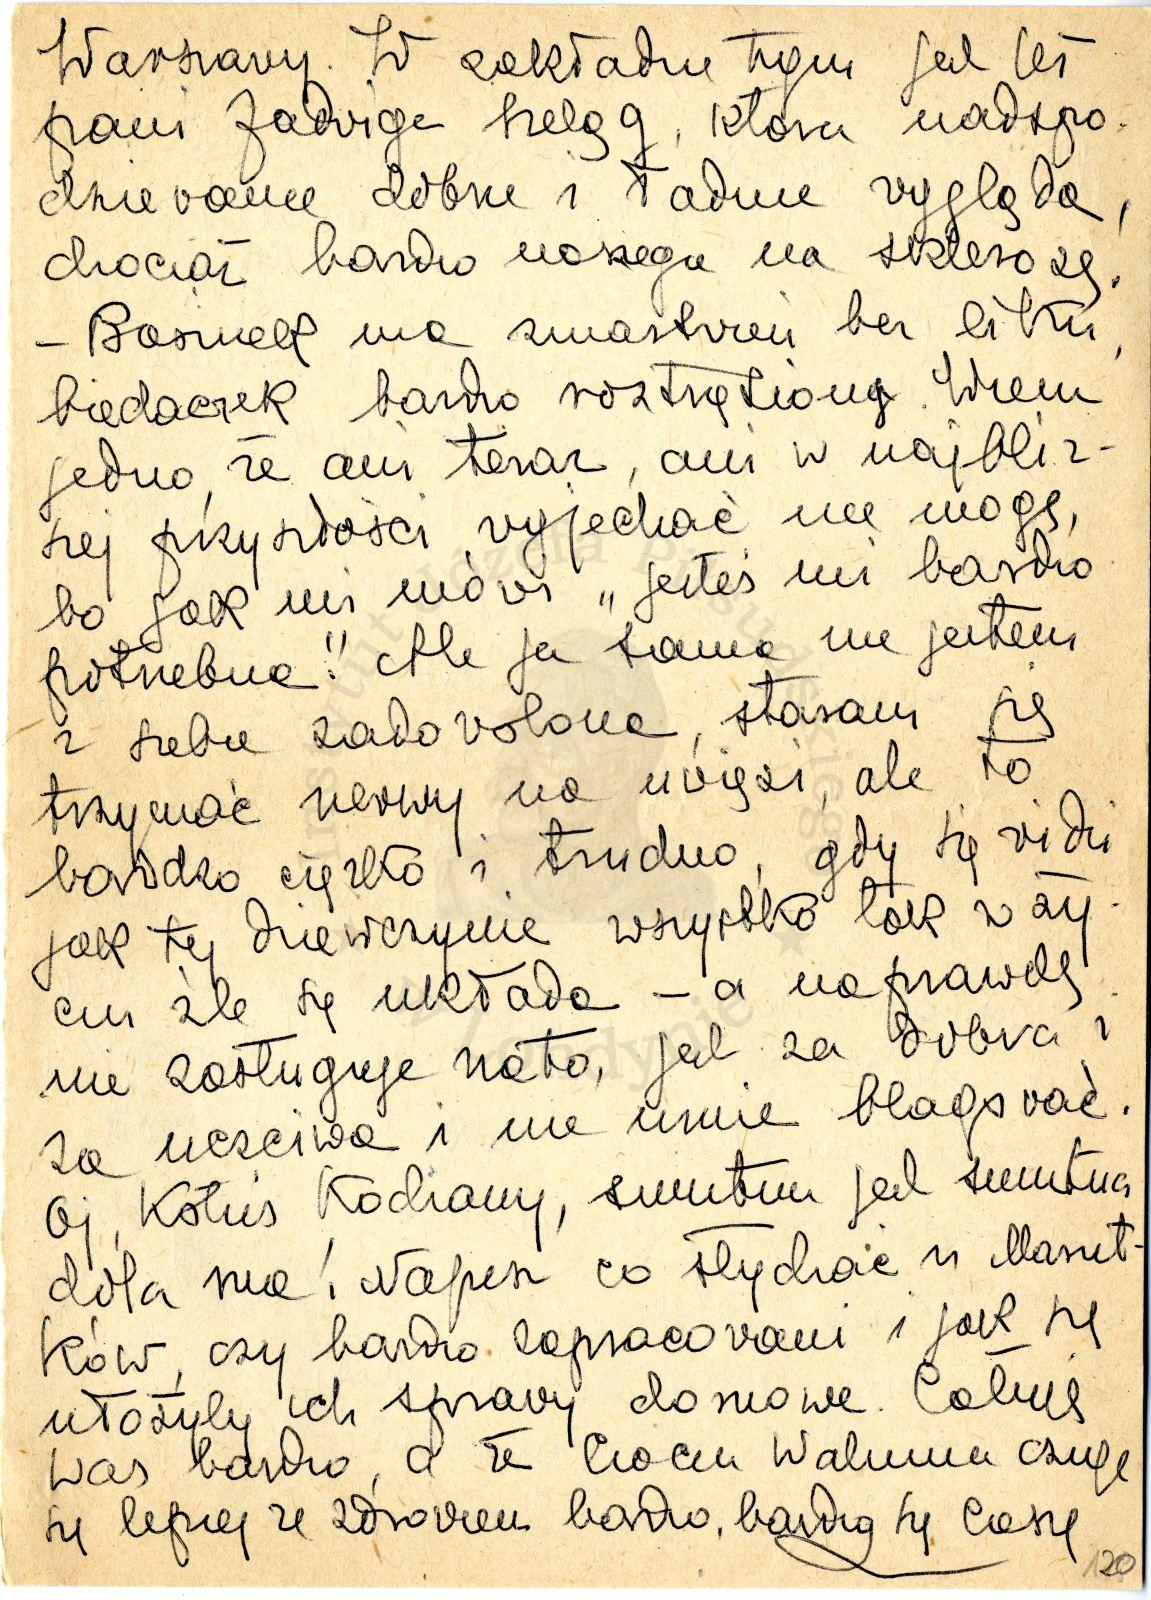 Warszawy. W zakładzie tym jest też
pani Jadwiga Szeląg, która nadspo-
dziewanie dobrze i ładnie wygląda,
chociaż bardzo narzega na sklerozę.
– Basinek ma zmartwień bez liku,
biedaczek bardzo roztrzęsiona. Wiem
jedno, że ani teraz, ani w najbliż-
szej przyszłości wyjechać nie mogę,
bo jak mi mówi „jesteś mi bardzo
potrzebna". Ale ja sama nie jestem
z siebie zadowolona, staram się
trzymać nerwy na uwięzi, ale to
bardzo ciężko i trudno, gdy się widzi
jak tej dziewczynie wszystko tak w ży-
ciu źle się układa – a naprawdę
nie zasługuje na to, jest za dobra i
za uczciwa i nie umie blagować.
Oj, Kotuś Kochany, smutna jest
dola ma! Napisz co słychać u
ków, czy bardzo zapracowani i jak się
ułożyły ich sprawy domowe. Całuję
Was bardzo, a że Ciocia Walunia czuje
się lepiej ze zdrowiem bardzo, bardzo się cieszę
120
Instytut Józefa Piłsudskiego